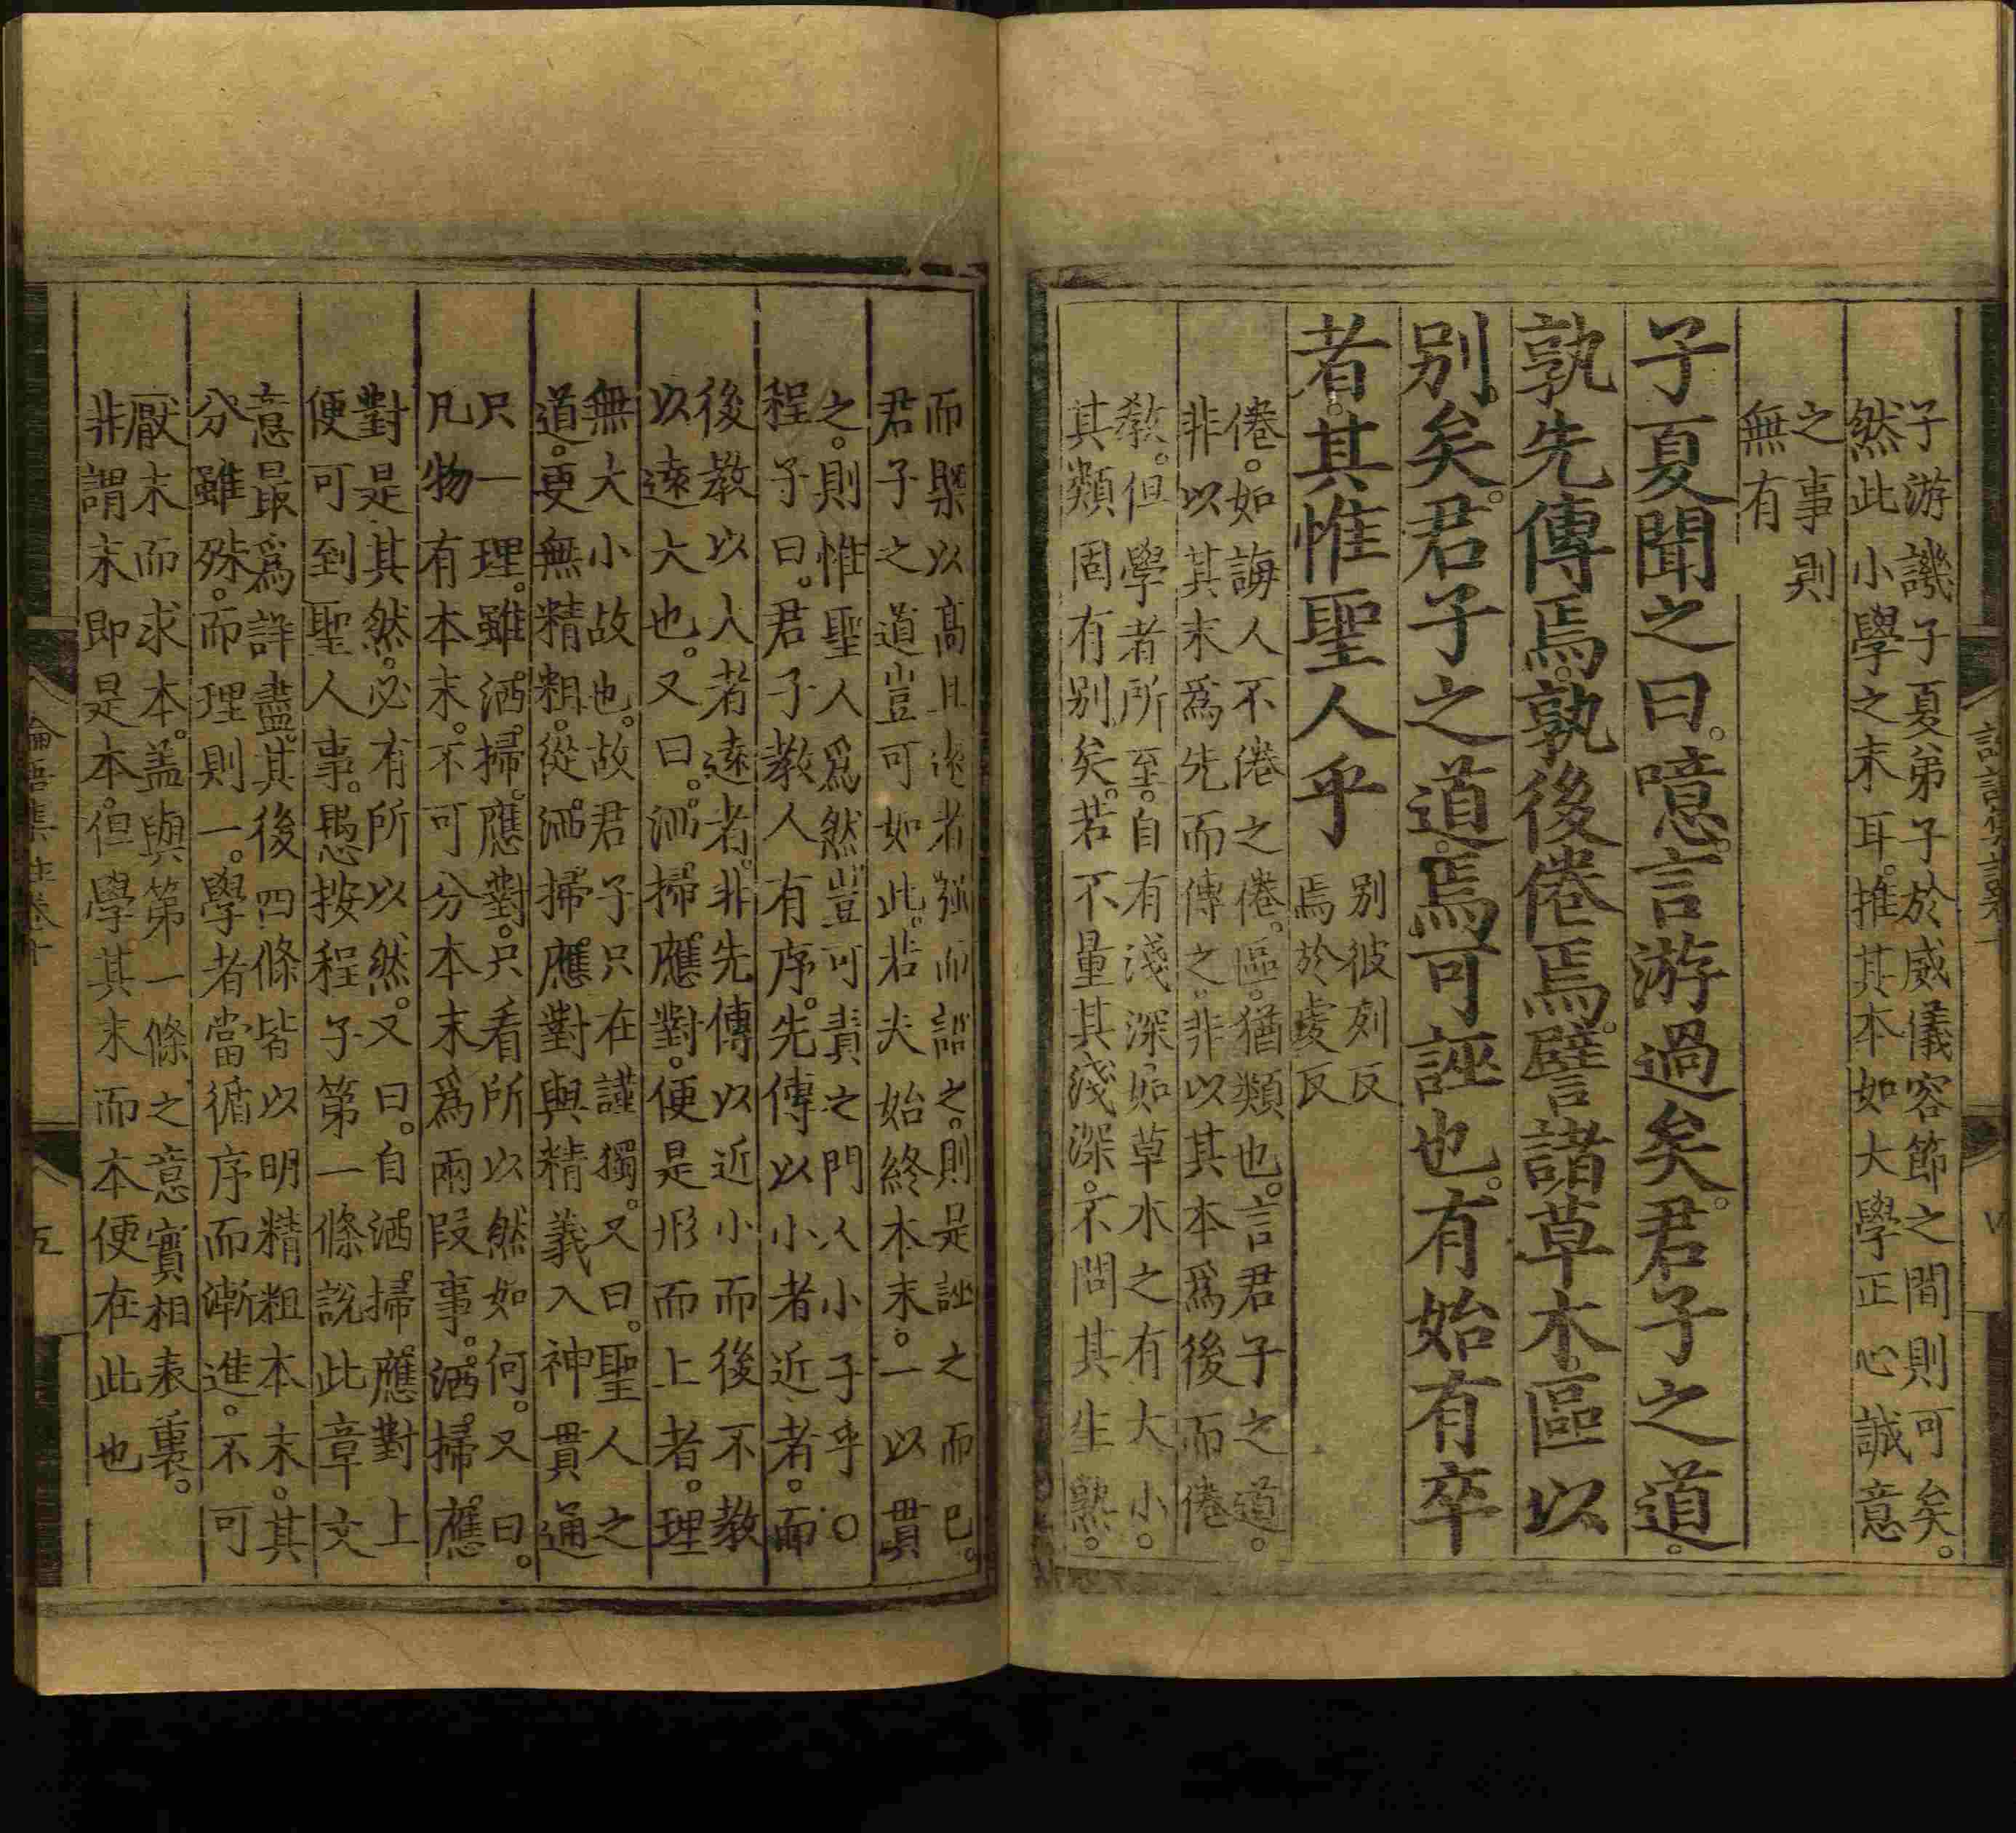 子游譏子夏弟子於威儀容節之間則可矣。
然此小學之末耳。推其本如大學正心誠意
之事則
無有
子夏聞之曰。噫。言游過矣。君子之道。
孰先傳焉。孰後倦焉。譬諸草木。區以
別矣。君子之道。焉可誣也。有始有卒
者。其惟聖人乎
別彼列反
焉於虔反
倦。如誨人不倦之倦。區。猶類也。言君子之道。
非以其末爲先而傳之。非以其本爲後而倦
教。但學者所至。自有淺深。如草木之有大小。
其類固有別矣。若不量其淺深。不問其生熟。
而槩以高且遠者强而語之。則是誣之而已。
君子之道。豈可如此。若夫始終本末。一以貫
之。則惟聖人爲然。豈可責之門人小子乎。○
程子曰。君子教人有序。先傳以小者近者。而
後教以大者遠者。非先傳以近小而後不教
以遠大也。又曰。洒掃應對。便是形而上者。理
無大小故也。故君子只在謹獨。又曰。聖人之
道。更無精粗。從洒掃應對與精義入神貫通
只一理。雖洒掃應對。只看所以然如何。又曰。
凡物有本末。不可分本末爲兩段事。洒掃應
對是其然。必有所以然。又曰。自洒掃應對上
便可到聖人事。愚按程子第一條說此章文
意最爲詳盡。其後四條皆以明精粗本末。其
分雖殊。而理則一。學者當循序而漸進。不可
厭末而求本。蓋與第一條之意實相表裏。
非謂末即是本。但學其末而本便在此也
論語集註卷十
五